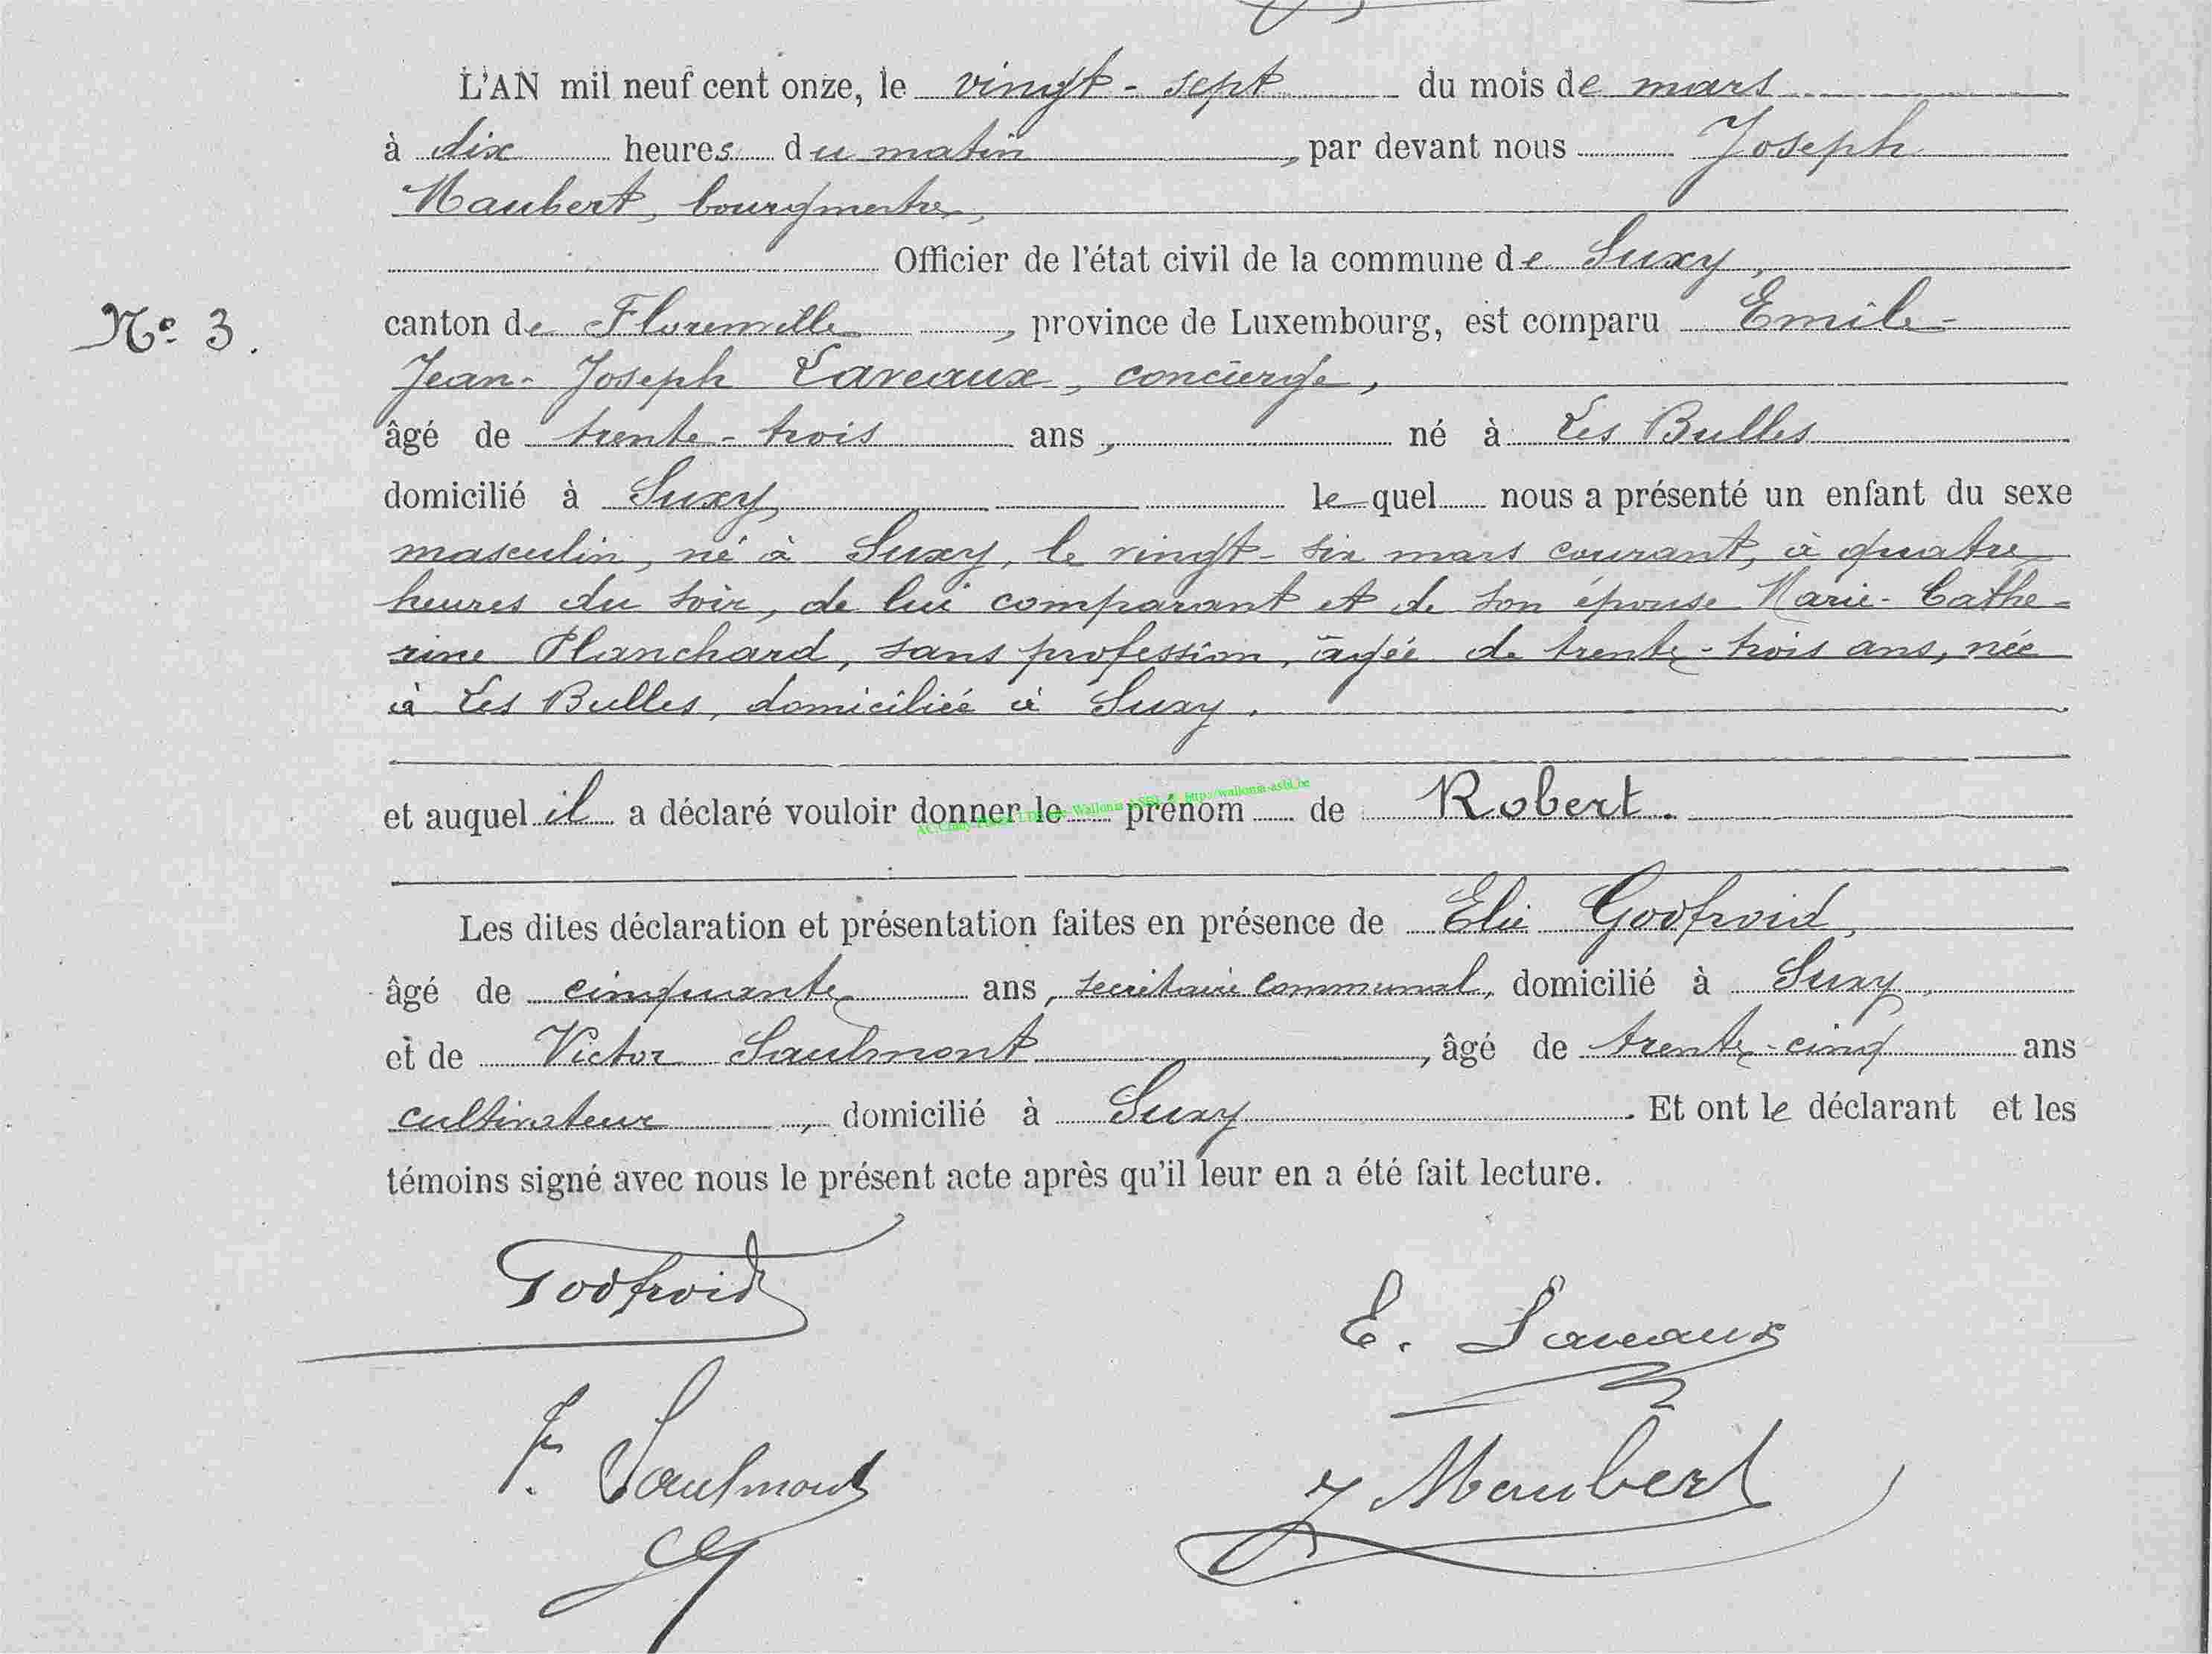 L'AN mil neuf cent onze, le vingt-sept du mois de mars
à dix heures du matin, par devant nous Joseph
Maubert, bourgmestre,
Officier de l'état civil de la commune de Suxy,
N° 3.
canton de Florenville, province de Luxembourg, est comparu Emile-
Jean-Joseph Laveaux, concierge,
âgé de trente-trois ans, né à Les Bulles
domicilié à Suxy, lequel nous a présenté un enfant du sexe
masculin, né à Suxy, le vingt-six mars courant, à quatre
heures du soir, de lui comparant et de son épouse Marie-Cathe-
rine Planchard, sans profession, âgée de trente-trois ans, née
à Les Bulles, domiciliée à Suxy.
et auquel il a déclaré vouloir donner le prénom de Robert.
Wallonia ASBL http://wallonia-asbl.be
Les dites déclaration et présentation faites en présence de Elie Godfroid,
âgé de cinquante ans, secrétaire communal, domicilié à Suxy,
et de Victor Saulmont, âgé de trente-cinq ans
cultivateur, domicilié à Suxy. Et ont le déclarant et les
témoins signé avec nous le présent acte après qu'il leur en a été fait lecture.
Godfroid
E. Laveaux
Saulmont
J Maubert